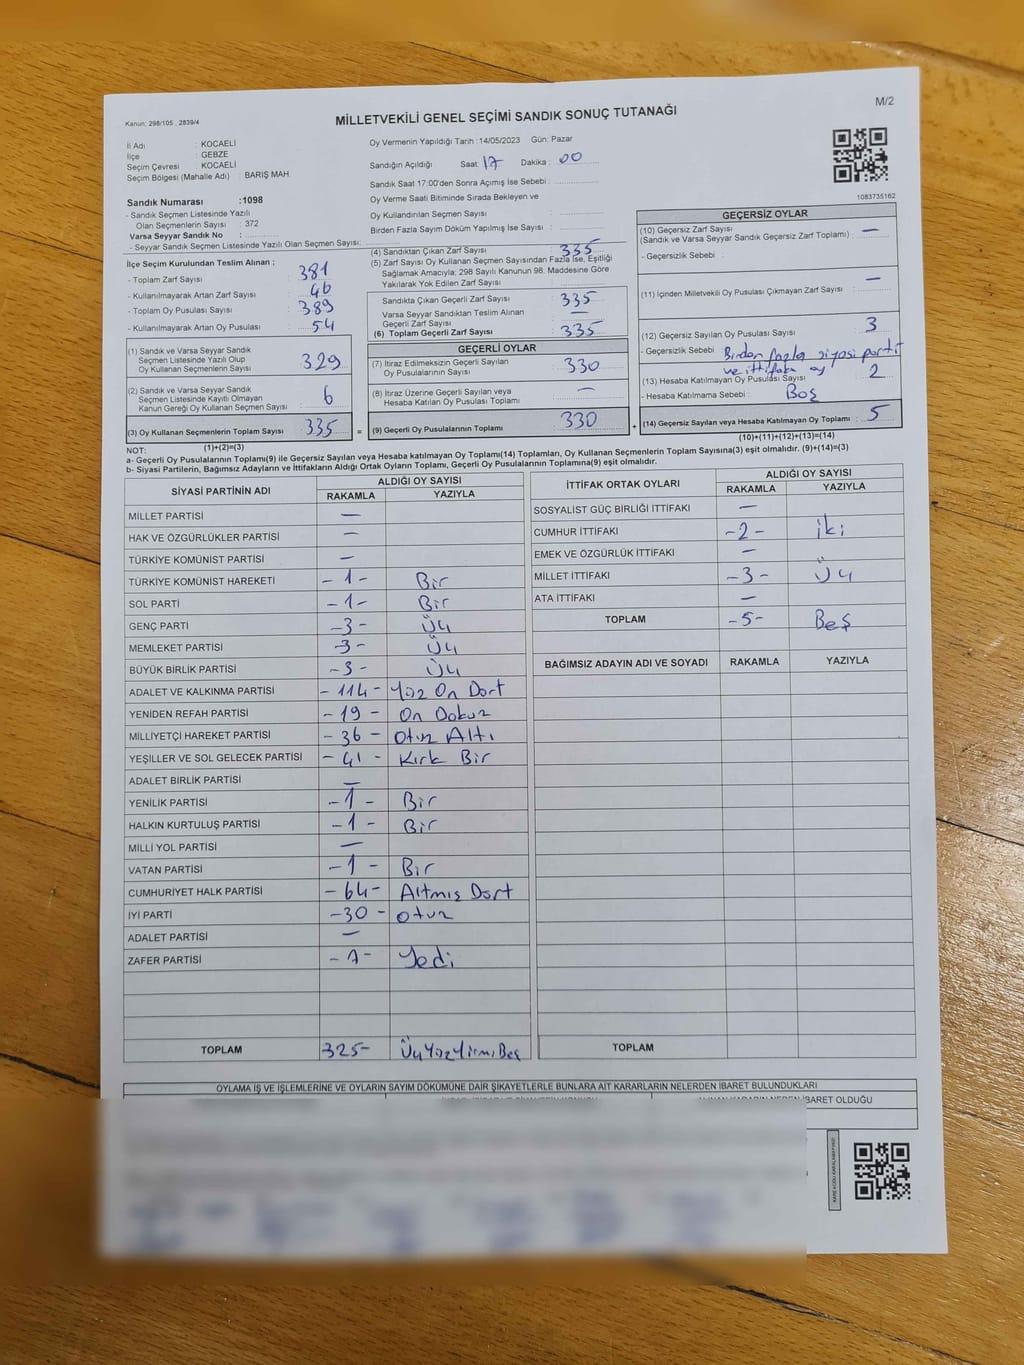 M/2
Kanun: 298/105 , 2839/4
MİLLETVEKİLİ GENEL SEÇİMİ SANDIK SONUÇ TUTANAĞI
İl Adı : KOCAELİ
İlçe : GEBZE
Seçim Çevresi : KOCAELİ
Seçim Bölgesi (Mahalle Adı) : BARIŞ MAH.
Sandık Numarası :1098
- Sandık Seçmen Listesinde Yazılı
Olan Seçmenlerin Sayısı : 372
Varsa Seyyar Sandık No :
- Seyyar Sandık Seçmen Listesinde Yazılı Olan Seçmen Sayısı:
Oy Vermenin Yapıldığı Tarih :14/05/2023 Gün: Pazar
Sandığın Açıldığı Saat: 17 Dakika : 00
Sandık Saat 17:00'den Sonra Açımış İse Sebebi :
Oy Verme Saati Bitiminde Sırada Bekleyen ve
Oy Kullandırılan Seçmen Sayısı :
Birden Fazla Sayım Döküm Yapılmış İse Sayısı :
1083735162
İlçe Seçim Kurulundan Teslim Alınan ;
- Toplam Zarf Sayısı : 381
- Kullanılmayarak Artan Zarf Sayısı : 46
- Toplam Oy Pusulası : 389
- Kullanılmayarak Artan Oy Pusulası : 54
(1) Sandık ve Varsa Seyyar Sandık
Seçmen Listesinde Yazılı Olup
Oy Kullanan Seçmenlerin Sayısı : 329
(2) Sandık ve Varsa Seyyar Sandık
Seçmen Listesinde Kayıtlı Olmayan
Kanun Gereği Oy Kullanan Seçmen Sayısı : 6
(3) Oy Kullanan Seçmenlerin Toplam Sayısı : 335
(1)+(2)=(3)
(4) Sandıktan Çıkan Zarf Sayısı : 335
(5) Zarf Sayısı Oy Kullanan Seçmen Sayısından Fazla İse, Eşitliği
Sağlamak Amacıyla; 298 Sayılı Kanunun 98. Maddesine Göre
Yakılarak Yok Edilen Zarf Sayısı :
Sandıkta Çıkan Geçerli Zarf Sayısı : 335
Varsa Seyyar Sandıktan Teslim Alınan
Geçerli Zarf Sayısı : —
(6) Toplam Geçerli Zarf Sayısı : 335
GEÇERLİ OYLAR
(7) İtiraz Edilmeksizin Geçerli Sayılan
Oy Pusulalarının Sayısı : 330
(8) İtiraz Üzerine Geçerli Sayılan veya
Hesaba Katılan Oy Pusulası Toplamı : —
= (9) Geçerli Oy Pusulalarının Toplamı : 330
GEÇERSİZ OYLAR
(10) Geçersiz Zarf Sayısı
(Sandık ve Varsa Seyyar Sandık Geçersiz Zarf Toplamı) : —
- Geçersizlik Sebebi :
(11) İçinden Milletvekili Oy Pusulası Çıkmayan Zarf Sayısı : —
(12) Geçersiz Sayılan Oy Pusulası Sayısı : 3
- Geçersizlik Sebebi : Birden fazla siyasi parti
ve ittifaka oy
(13) Hesaba Katılmayan Oy Pusulası Sayısı : 2
- Hesaba Katılmama Sebebi : Boş
+ (14) Geçersiz Sayılan veya Hesaba Katılmayan Oy Toplamı : 5
(10)+(11)+(12)+(13)=(14)
NOT:
a- Geçerli Oy Pusulalarının Toplamı(9) ile Geçersiz Sayılan veya Hesaba Katılmayan Oy Toplamı(14) Toplamları, Oy Kullanan Seçmenlerin Toplam Sayısına(3) eşit olmalıdır. (9)+(14)=(3)
b- Siyasi Partilerin, Bağımsız Adayların ve İttifakların Aldığı Ortak Oyların Toplamı, Geçerli Oy Pusulalarının Toplamına(9) eşit olmalıdır.
SİYASİ PARTİNİN ADI ALDIĞI OY SAYISI
RAKAMLA YAZIYLA
MİLLET PARTİSİ —
HAK VE ÖZGÜRLÜKLER PARTİSİ —
TÜRKİYE KOMÜNİST PARTİSİ —
TÜRKİYE KOMÜNİST HAREKETİ -1- Bir
SOL PARTİ -1- Bir
GENÇ PARTİ -3- Üç
MEMLEKET PARTİSİ -3- Üç
BÜYÜK BİRLİK PARTİSİ -3- Üç
ADALET VE KALKINMA PARTİSİ -114- Yüz On Dört
YENİDEN REFAH PARTİSİ -19- On Dokuz
MİLLİYETÇİ HAREKET PARTİSİ -36- Otuz Altı
YEŞİLLER VE SOL GELECEK PARTİSİ -41- Kırk Bir
ADALET BİRLİK PARTİSİ —
YENİLİK PARTİSİ -1- Bir
HALKIN KURTULUŞ PARTİSİ -1- Bir
MİLLİ YOL PARTİSİ —
VATAN PARTİSİ -1- Bir
CUMHURİYET HALK PARTİSİ -64- Altmış Dört
İYİ PARTİ -30- Otuz
ADALET PARTİSİ —
ZAFER PARTİSİ -7- Yedi
TOPLAM 325- ÜçYüzYirmiBeş
İTTİFAK ORTAK OYLARI ALDIĞI OY SAYISI
RAKAMLA YAZIYLA
SOSYALİST GÜÇ BİRLİĞİ İTTİFAKI —
CUMHUR İTTİFAKI -2- iki
EMEK VE ÖZGÜRLÜK İTTİFAKI —
MİLLET İTTİFAKI -3- Üç
ATA İTTİFAKI —
TOPLAM -5- Beş
BAĞIMSIZ ADAYIN ADI VE SOYADI RAKAMLA YAZIYLA
TOPLAM
OYLAMA İŞ VE İŞLEMLERİNE VE OYLARIN SAYIM DÖKÜMÜNE DAİR ŞİKAYETLERLE BUNLARA AİT KARARLARIN NELERDEN İBARET BULUNDUKLARI
İBARET OLDUĞU